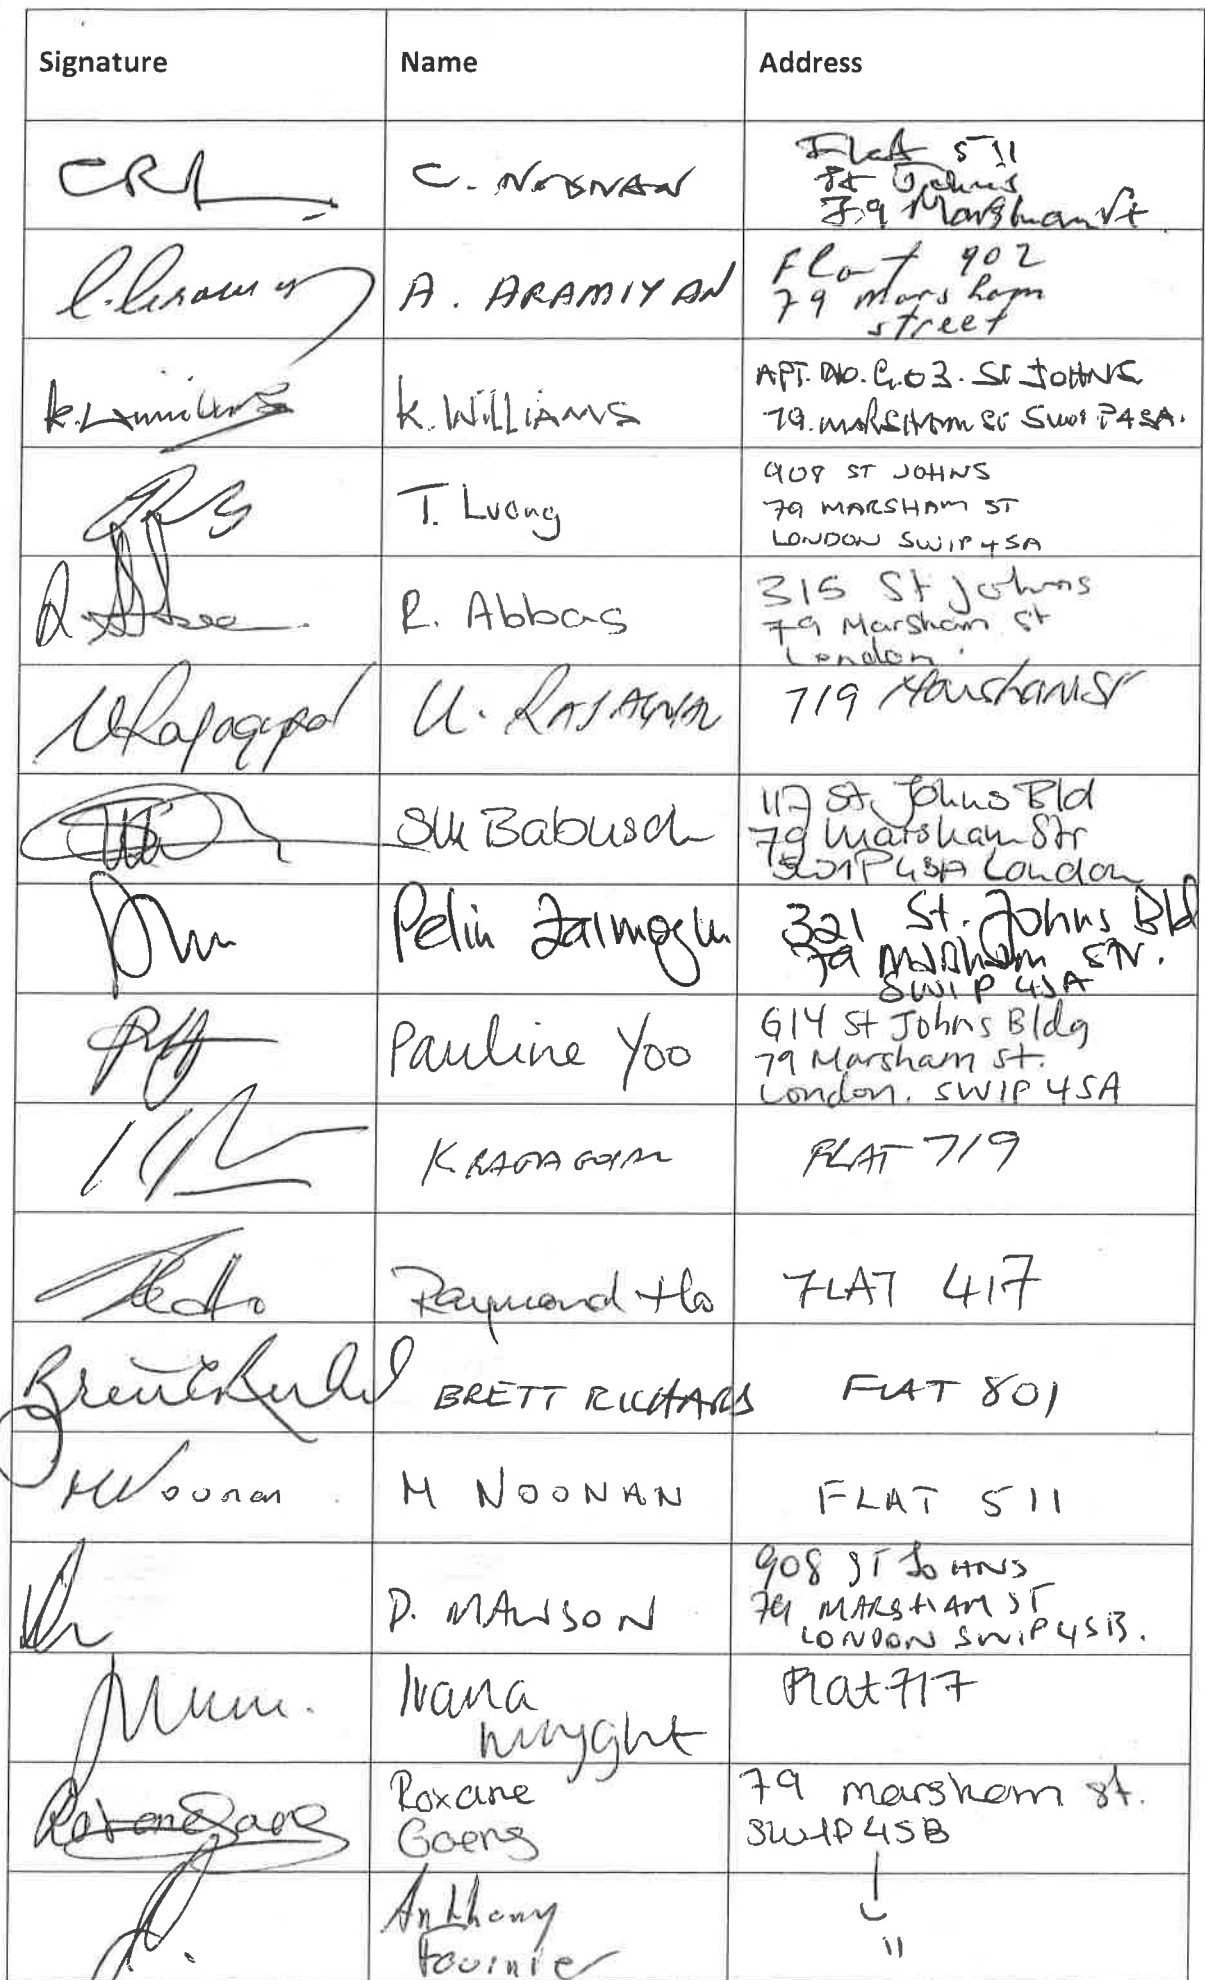 Signature Name Address
C. NOONAN
Flat 511
St Johns
79 Marsham St
A. ARAMIYAN
Flat 902
79 Marsham
street
K. WILLIAMS
APT. NO. G.03. St JOHNS
79. MARSHAM St SW1P4SA.
T. Luong
908 ST JOHNS
79 MARSHAM ST
LONDON SW1P 4SA
R. Abbas
315 St Johns
79 Marsham St
London.
U Rajagopal
U. RAJAGOPAL
719 Marsham St
Babusch
117 St. Johns Bld
79 Marsham Str
SW1P4SA London
Pelin Zaimoglu
321 St. Johns Bld
79 Marsham STr.
SW1P 4SA
Pauline Yoo
G14 St Johns Bldg
79 Marsham St.
London. SW1P 4SA
K RAJAGOPAL
FLAT 719
Raymond Ho
FLAT 417
BRETT RICHARDS
FLAT 801
M Noonan
M NOONAN
FLAT 511
D. MAWSON
908 ST JOHNS
79 MARSHAM ST
LONDON SW1P4SB.
Ivana
Flat 717
Roxane Goerg
Roxane
Goerg
79 marsham st.
SW1P4SB
Anthony
Fournier
"